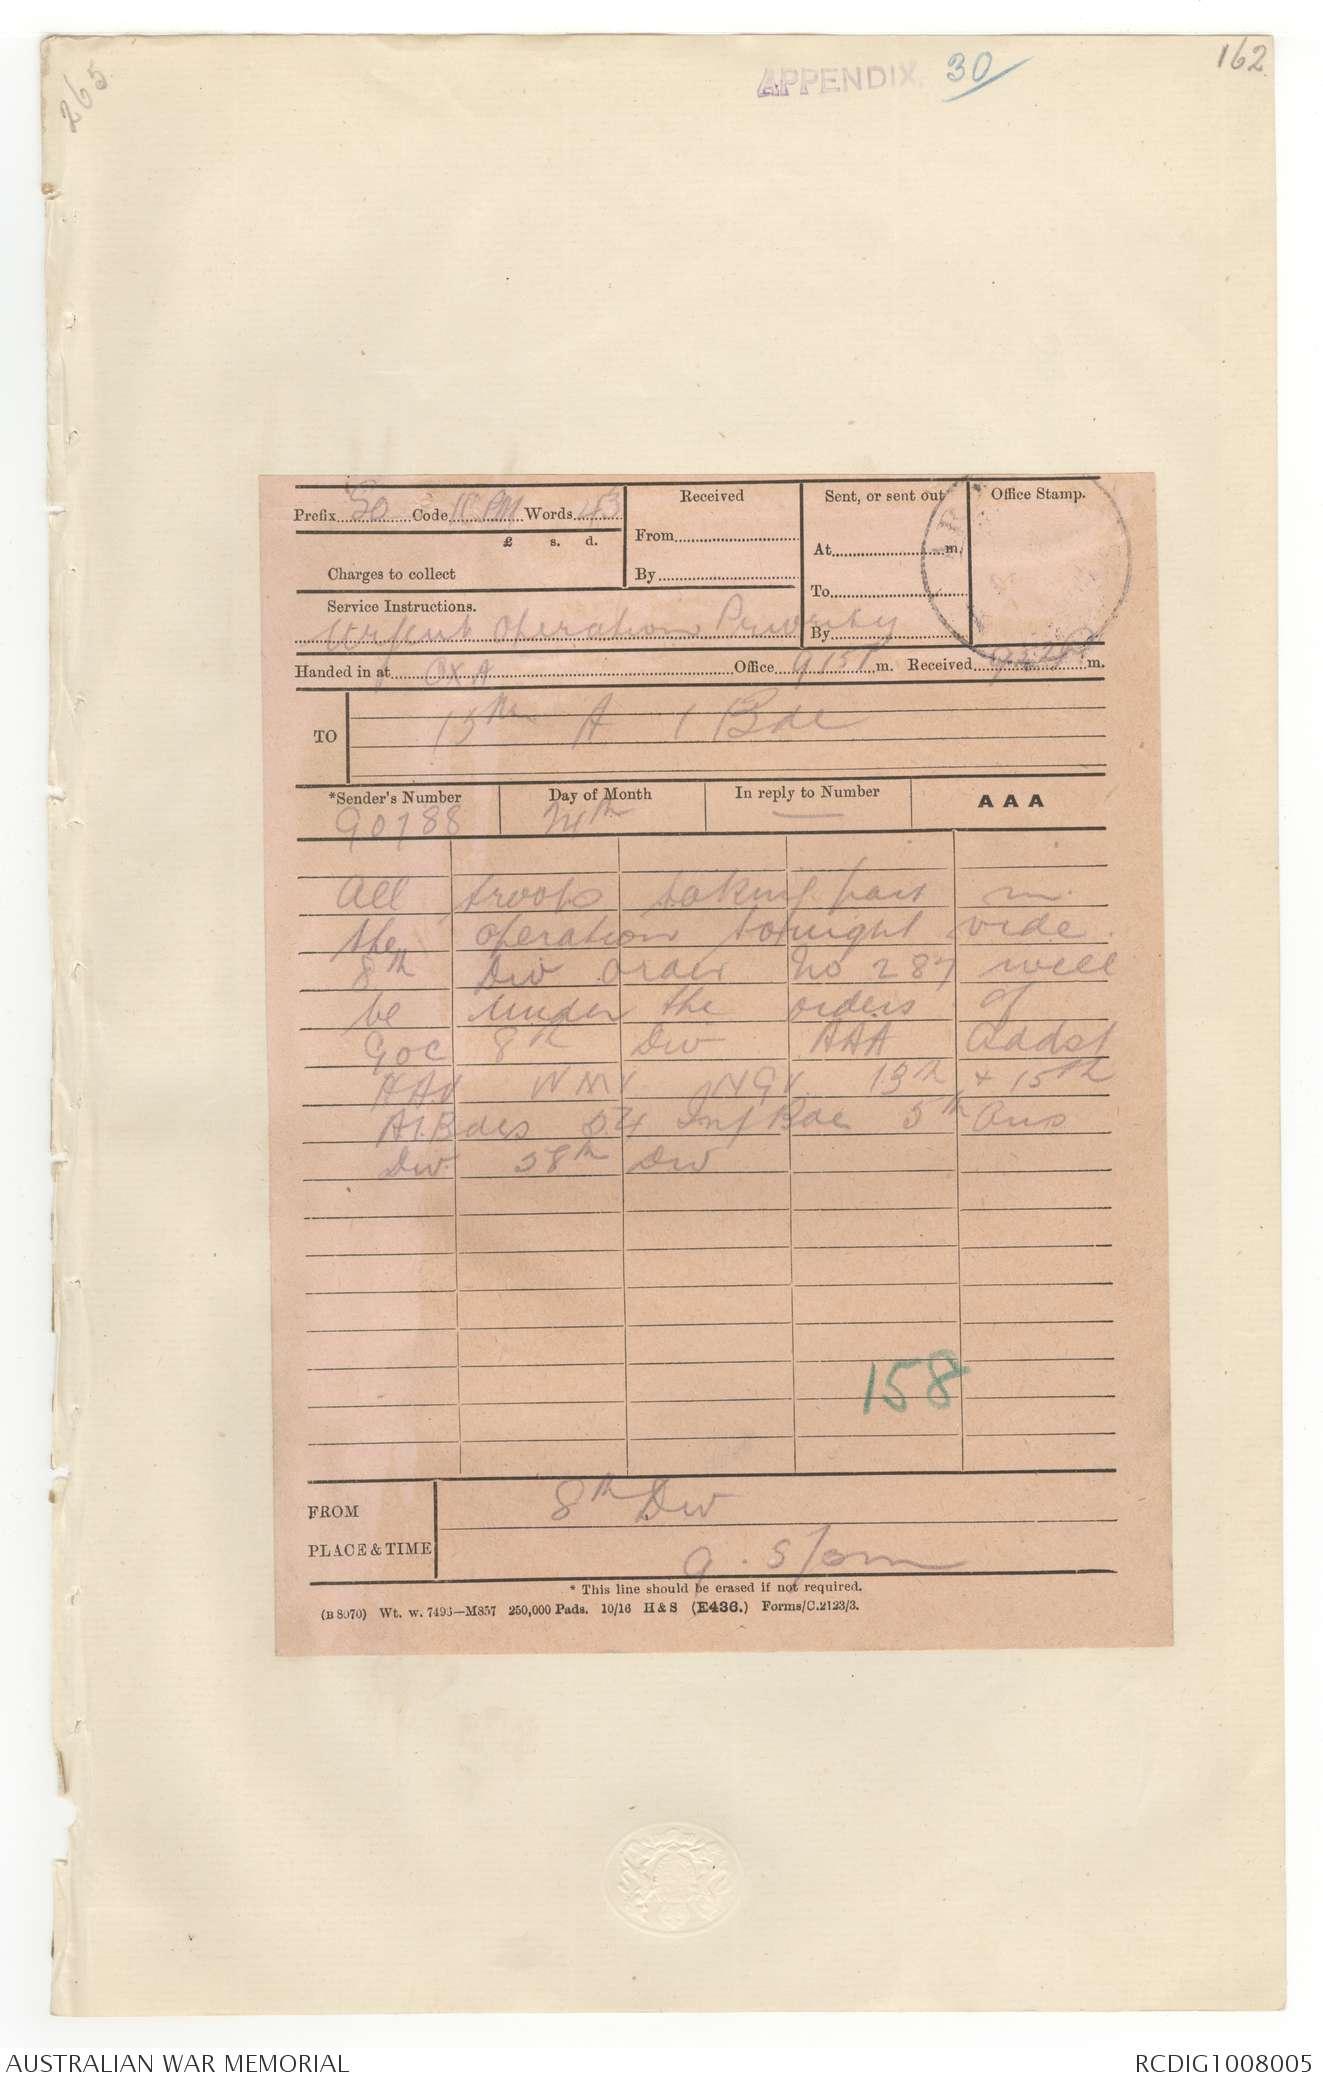 265
APPENDIX 30
162
Prefix SO Code PM Words 43
Received
Sent, or sent out
Office Stamp.
£ s. d.
From
At m.
Charges to collect
By
To
Service Instructions.
Urgent Operation Priority
By
Handed in at OXA Office 9 15P m. Received m.
TO
15th A I Bde
*Sender's Number
Day of Month
In reply to Number
AAA
24th
All troops taking part in
the operation tonight vide
8th Div order No 287 will
be under the orders of
GOC 8th Div AAA addsd
HAV NMV NGV 13th & 15th
AI. Bdes 54 Inf Bde 5th Aus
Div. 58th Div
158
FROM
8th Div
PLACE & TIME
9.5pm
* This line should be erased if not required.
(B 8070) Wt. w. 7496—M857 250,000 Pads. 10/16 H & S (E436.) Forms/C.2123/3.
AUSTRALIAN WAR MEMORIAL
RCDIG1008005